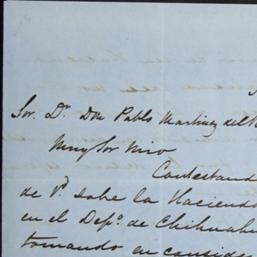 Sor. Dr. Don Pablo Martinez del
Muy Sor mio
Contestando
de Vd. sobre la Hacienda
en el Depo. de Chihuahu
tomando en conside